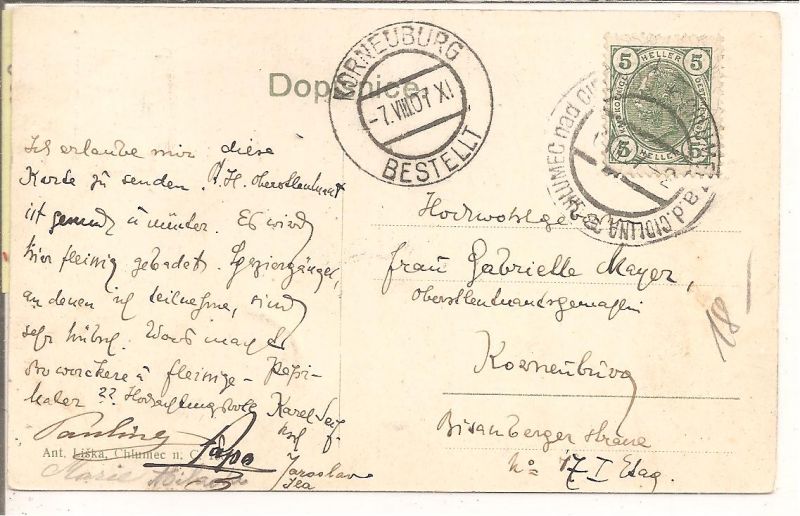 Dopisnice
KORNEUBURG
-7.VIII.07 XI
BESTELLT
5 HELLER 5
5 HELLER 5
CHLUMEC nad CIDL
CHLUMETZ a.d. CIDLINA
Ich erlaube mir diese
Karte zu senden. P.H. Oberstleutnant
ist gesund u munter. Es wird
hier fleissig gebadet. Spaziergänge,
an denen ich teilnehme, sind
sehr hübsch. Was macht
die wackere u fleissige - Pepi-
?? Hochachtungsvoll Karel
Pauline Papa
Jaroslav
Ant. Liška, Chlumec n. C.
Marie
Hochwohlgeboren
Frau Gabrielle Mayer,
Oberstleutnantsgemahlin
Korneuburg
Bisamberger Strasse
No 17 I Etag.
18-